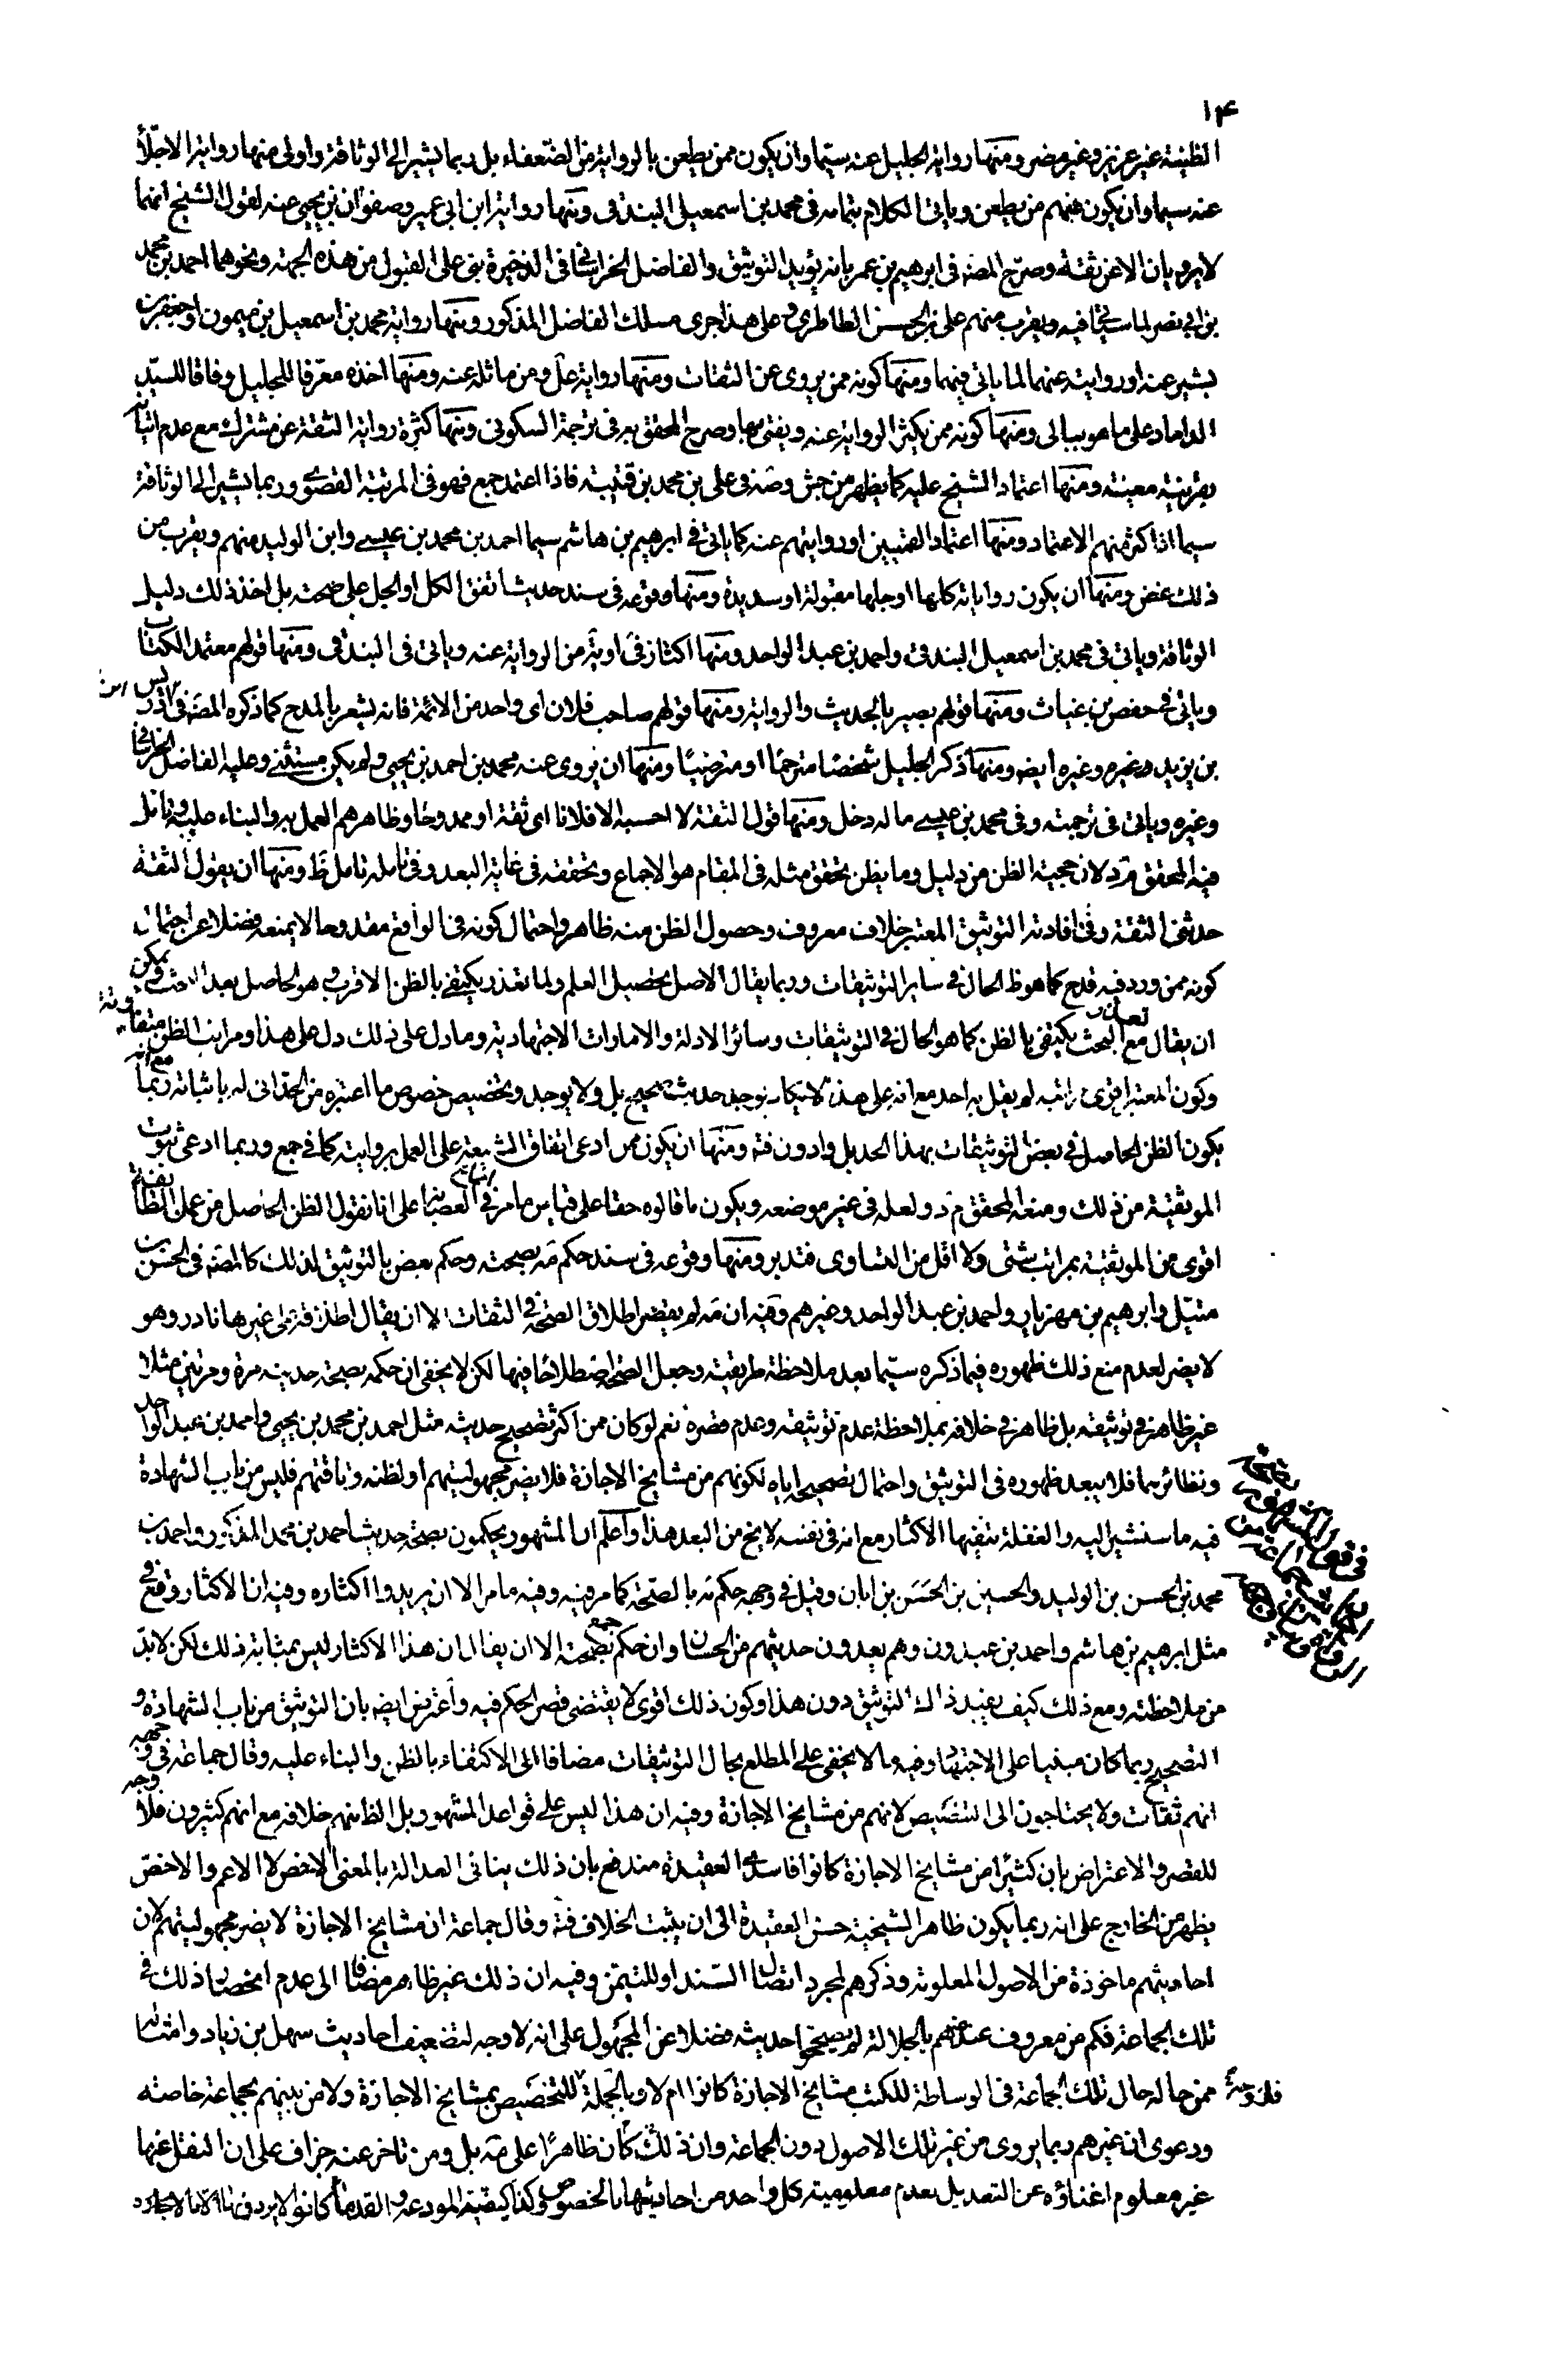 ١٤
الظنية غير عزيز وغير مضر ومنها رواية الجليل عنه سيما وان يكون ممن يطعن بالرواية من الضعفاء بل ربما يشير الى الوثاقة واولى منها رواية الاجلاء
عنه سيما وان يكون منهم من يطعن وياتى الكلام بتمامه فى محمد بن اسمعيل البندقى ومنها رواية ابن ابى عمير وصفوان بن يحيى عنه لقول الشيخ انهما
لا يرويان الا عن ثقة وصرح المصنه فى ابرهيم بن عمر بانه يؤيد التوثيق والفاضل الخراسانى فى الذخيرة بنى على القبول من هذه الجهة ونحوهما احمد بن محمد
بن ابى نصر لما سياتى فيه ويقرب منهم على بن الحسن الطاطرى وعلى هذا جرى مسلك الفاضل المذكور ومنها رواية محمد بن اسمعيل بن ميمون او جعفر بن
بشير عنه او روايته عنهما لما ياتى فيهما ومنها كونه ممن يروى عن الثقات ومنها رواية على ومن ماثله عنه ومنها اخذه معرفا للجليل وفاقا للسيد
الداماد على ما هو ببالى ومنها كونه ممن يكثر الرواية عنه ويفتى بها وصرح المحقق به فى ترجمة السكونى ومنها كثرة رواية الثقة عن مشترك مع عدم اتيانه
بقرينة معينة ومنها اعتماد الشيخ عليه كما يظهر من جش وصه فى على بن محمد بن قتيبة فاذا اعتمد جمع فهو فى المرتبة القصوى وربما يشير الى الوثاقة
سيما اذا كثر منهم الاعتماد ومنها اعتماد القميين او روايتهم عنه كما ياتى فى ابرهيم بن هاشم سيما احمد بن محمد بن عيسى وابن الوليد منهم ويقرب من
ذلك غض ومنها ان يكون رواياته كلها او جلها مقبولة او سديدة ومنها وقوعه فى سند حديث اتفق الكل او الجل على صحته بل اخذ ذلك دليل
الوثاقة وياتى فى محمد بن اسمعيل البندقى واحمد بن عبد الواحد ومنها اكثار فى او يه من الرواية عنه وياتى فى البندقى ومنها قولهم معتمد الكتاب
وياتى فى حفص بن غياث ومنها قولهم بصير بالحديث والرواية ومنها قولهم صاحب فلان اى واحد من الائمة فانه يشعر بالمدح كما ذكره المصنه فى ادريس
بن يزيد وغيره وغيره ايضه ومنها ذكر الجليل شخصا مترحما او مترضيا ومنها ان يروى عنه محمد بن احمد بن يحيى ولم يكن مستثنى وعليه الفاضل الخراسانى
وغيره وياتى فى ترجمته وفى محمد بن عيسى ما له دخل ومنها قول الثقة لا احسبه الا فلانا اى ثقة او ممدوحا وظاهرهم العمل به والبناء عليه وتامل
فيه المحقق مد لان حجية الظن من دليل وما يظن تحقق مثله فى المقام هو الاجماع وتحققه فى غاية البعد وفى تامله تامل ظ ومنها ان يقول الثقة
حدثنى الثقة وفى افادته التوثيق المعتبر خلاف معروف وحصول الظن منه ظاهر واحتمال كونه فى الواقع مقدوحا لا يمنعه فضلا عن احتمال
كونه ممن ورد فيه قدح كما هو ظ الحال فى ساير التوثيقات وربما يقال الاصل تحصيل العلم ولما تعذر يكتفى بالظن الاقرب وهو الحاصل بعد البحث ويمكن
ان يقال مع تعذر البحث يكتفى بالظن كما هو الحال فى التوثيقات وسائر الادلة والامارات الاجتهادية وما دل على ذلك دل على هذا ومراتب الظن متفاوتة
وكون المعتبر اقوى مراتبه لم يقل به احد مع انه على هذا لا يكاد يوجد حديث صحيح بل ولا يوجد وتخصيص خصوص ما اعتبره من الحد انى له باثباته مع انه ربما
يكون الظن الحاصل فى بعض التوثيقات بهذا الحد بل وادون فته ومنها ان يكون ممن ادعى اتفاق الشيعة على العمل بروايته كما فى جمع وربما ادعى ثبوت
الموثقية من ذلك ومنعه المحقق مد ولعله فى غير موضعه ويكون ما قالوه حقا على قياس ما مر فى العصابة على انا نقول الظن الحاصل من عمل الطائفة
اقوى من الموثقية بمراتب شتى ولا اقل من التساوى فتدبر ومنها وقوعه فى سند حكم مه بصحته وحكم بعض بالتوثيق لذلك كالمصنه فى الحسن بن
متيل وابرهيم بن مهزيار واحمد بن عبد الواحد وغيرهم وفيه ان مه لم يقصر اطلاق الصحة فى الثقات الا ان يقال اطلاقه على غيرها نادر وهو
لا يضر لعدم منع ذلك ظهوره فيما ذكره سيما بعد ملاحظة طريقته وجعل الصحة اصطلاحا فيها لكن لا يخفى ان حكمه بصحة حديثه مرة ومرتين مثلا
غير ظاهر فى توثيقه بل ظاهر فى خلافه بملاحظة عدم توثيقه وعدم قصره نعم لو كان ممن اكثر تصحيح حديثه مثل احمد بن محمد بن يحيى واحمد بن عبد الواحد
ونظائرهما فلا يبعد ظهوره فى التوثيق واحتمال تصحيحه اياه لكونهم من مشايخ الاجازة فلا يضر مجهوليتهم او لظنه وثاقتهم فليس من باب الشهادة
فيه ما سنشير اليه والغفلة ينفيها الاكثار مع انه فى نفسه لا يخ من البعد هذا واعلم ان المشهور يحكمون بصحة حديث احمد بن محمد المذكور واحمد بن
محمد بن الحسن بن الوليد والحسين بن الحسن بن ابان وقيل فى وجهه حكم مه بالصحة كما مر فيه وفيه ما مر الا ان يريدوا اكثاره وفيه ان الاكثار وقع فى
مثل ابرهيم بن هاشم واحمد بن عبدون وهم يعدون حديثهم من الحسان وان حكم جمع بصحته الا ان يقال ان هذا الاكثار ليس بمثابة ذلك لكن لا بد
من ملاحظته ومع ذلك كيف يفيد ذاك التوثيق دون هذا وكون ذلك اقوى لا يقتضى قصر الحكم فيه واعترض ايضه بان التوثيق من باب الشهادة و
التصحيح ربما كان مبنيا على الاجتهاد وفيه ما لا يخفى على المطلع بحال التوثيقات مضافا الى الاكتفاء بالظن والبناء عليه وقال جماعة فى وجهه
انهم ثقات ولا يحتاجون الى التنصيص لانهم من مشايخ الاجازة وفيه ان هذا ليس على قواعد المشهور بل الظ منهم خلافه مع انهم كثيرون فلا وجه
للقصر والاعتراض بان كثيرا من مشايخ الاجازة كانوا فاسدى العقيدة مندفع بان ذلك ينافى العدالة بالمعنى الاخص لا الاعم والاخص
يظهر من الخارج على انه ربما يكون ظاهر الشيخية حسن العقيدة الى ان يثبت الخلاف فته وقال جماعة ان مشايخ الاجازة لا يضر مجهوليتهم لان
احاديثهم ماخوذة من الاصول المعلومة وذكرهم لمجرد اتصال السند او للتيمن وفيه ان ذلك غير ظاهر مضافا الى عدم انحصار ذلك فى
تلك الجماعة فكم من معروف عندهم بالجلالة لم يصححوا حديثه فضلا عن المجهول على انه لا وجه لتضعيف احاديث سهل بن زياد وامثاله
ممن حاله حال تلك الجماعة فى الوساطة للكتب مشايخ الاجازة كانوا ام لا وبالجملة فلا وجه للتخصيص بمشايخ الاجازة ولا من بينهم بجماعة خاصة
ودعوى ان غيرهم ربما يروى من غير تلك الاصول دون الجماعة وان ذلك كان ظاهرا على مه بل ومن تاخر عنه جزاف على ان النقل عنها
غير معلوم اغناؤه عن التعديل لعدم معلومية كل واحد من احاديثها بالخصوص وكذا كيفية المودعة والقدماء كانوا لا يردونها الا بالاجازة